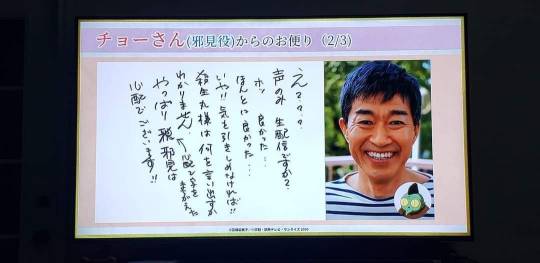 チョーさん(邪見役)からのお便り（2/3）
え？？？
声のみ 生配信ですか？
ホッ 良かった…
ほんとに良かった…
いや!! 気を引きしめなければ!!
殺生丸様は何を言い出すか
わかりません ← 心配で字をまちがえた
やっぱり 邪見は
心配でございます!!
©高橋留美子／小学館・読売テレビ・サンライズ